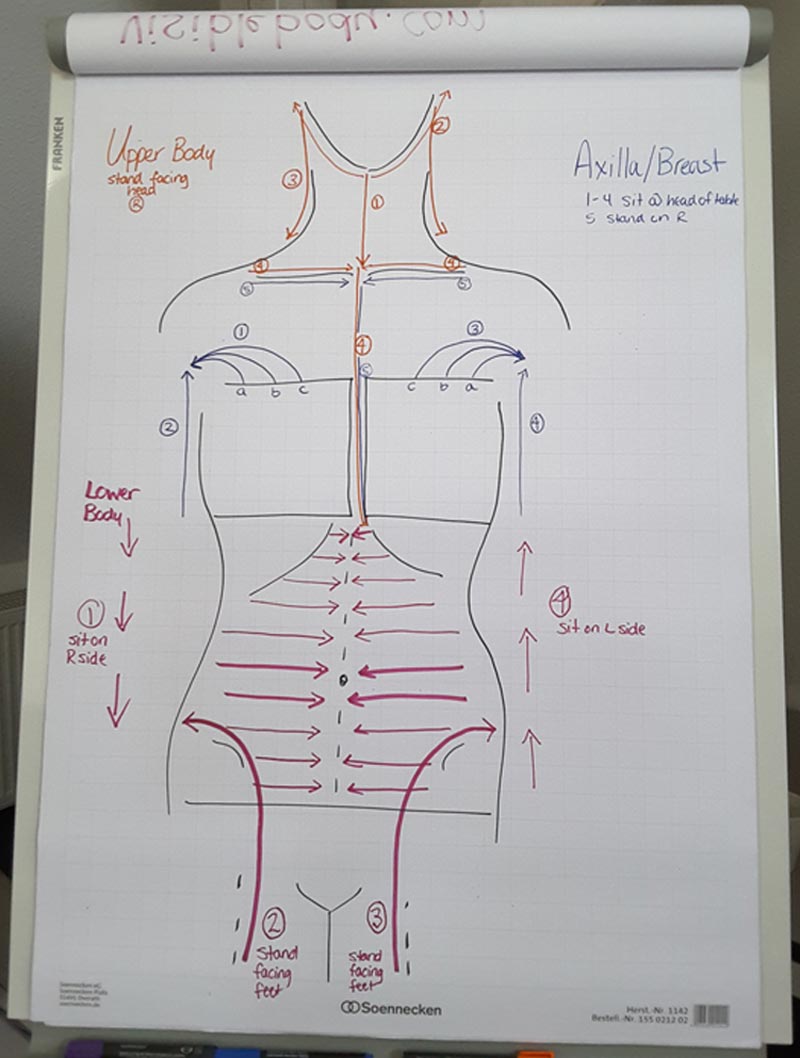 Visiblebody.com
FRANKEN
Upper Body
stand facing
head
R
Axilla/Breast
1-4 sit @ head of table
5 stand on R
2
3
1
4
4
5
5
1
3
4
5
a b c
c b a
2
4
Lower
Body
1
sit on
R side
4
Sit on L side
2
Stand
facing
feet
3
stand
facing
feet
Soennecken eG
Soennecken-Platz
51491 Overath
soennecken.de
Soennecken
Herst.-Nr. 1142
Bestell.-Nr. 155 0212 02